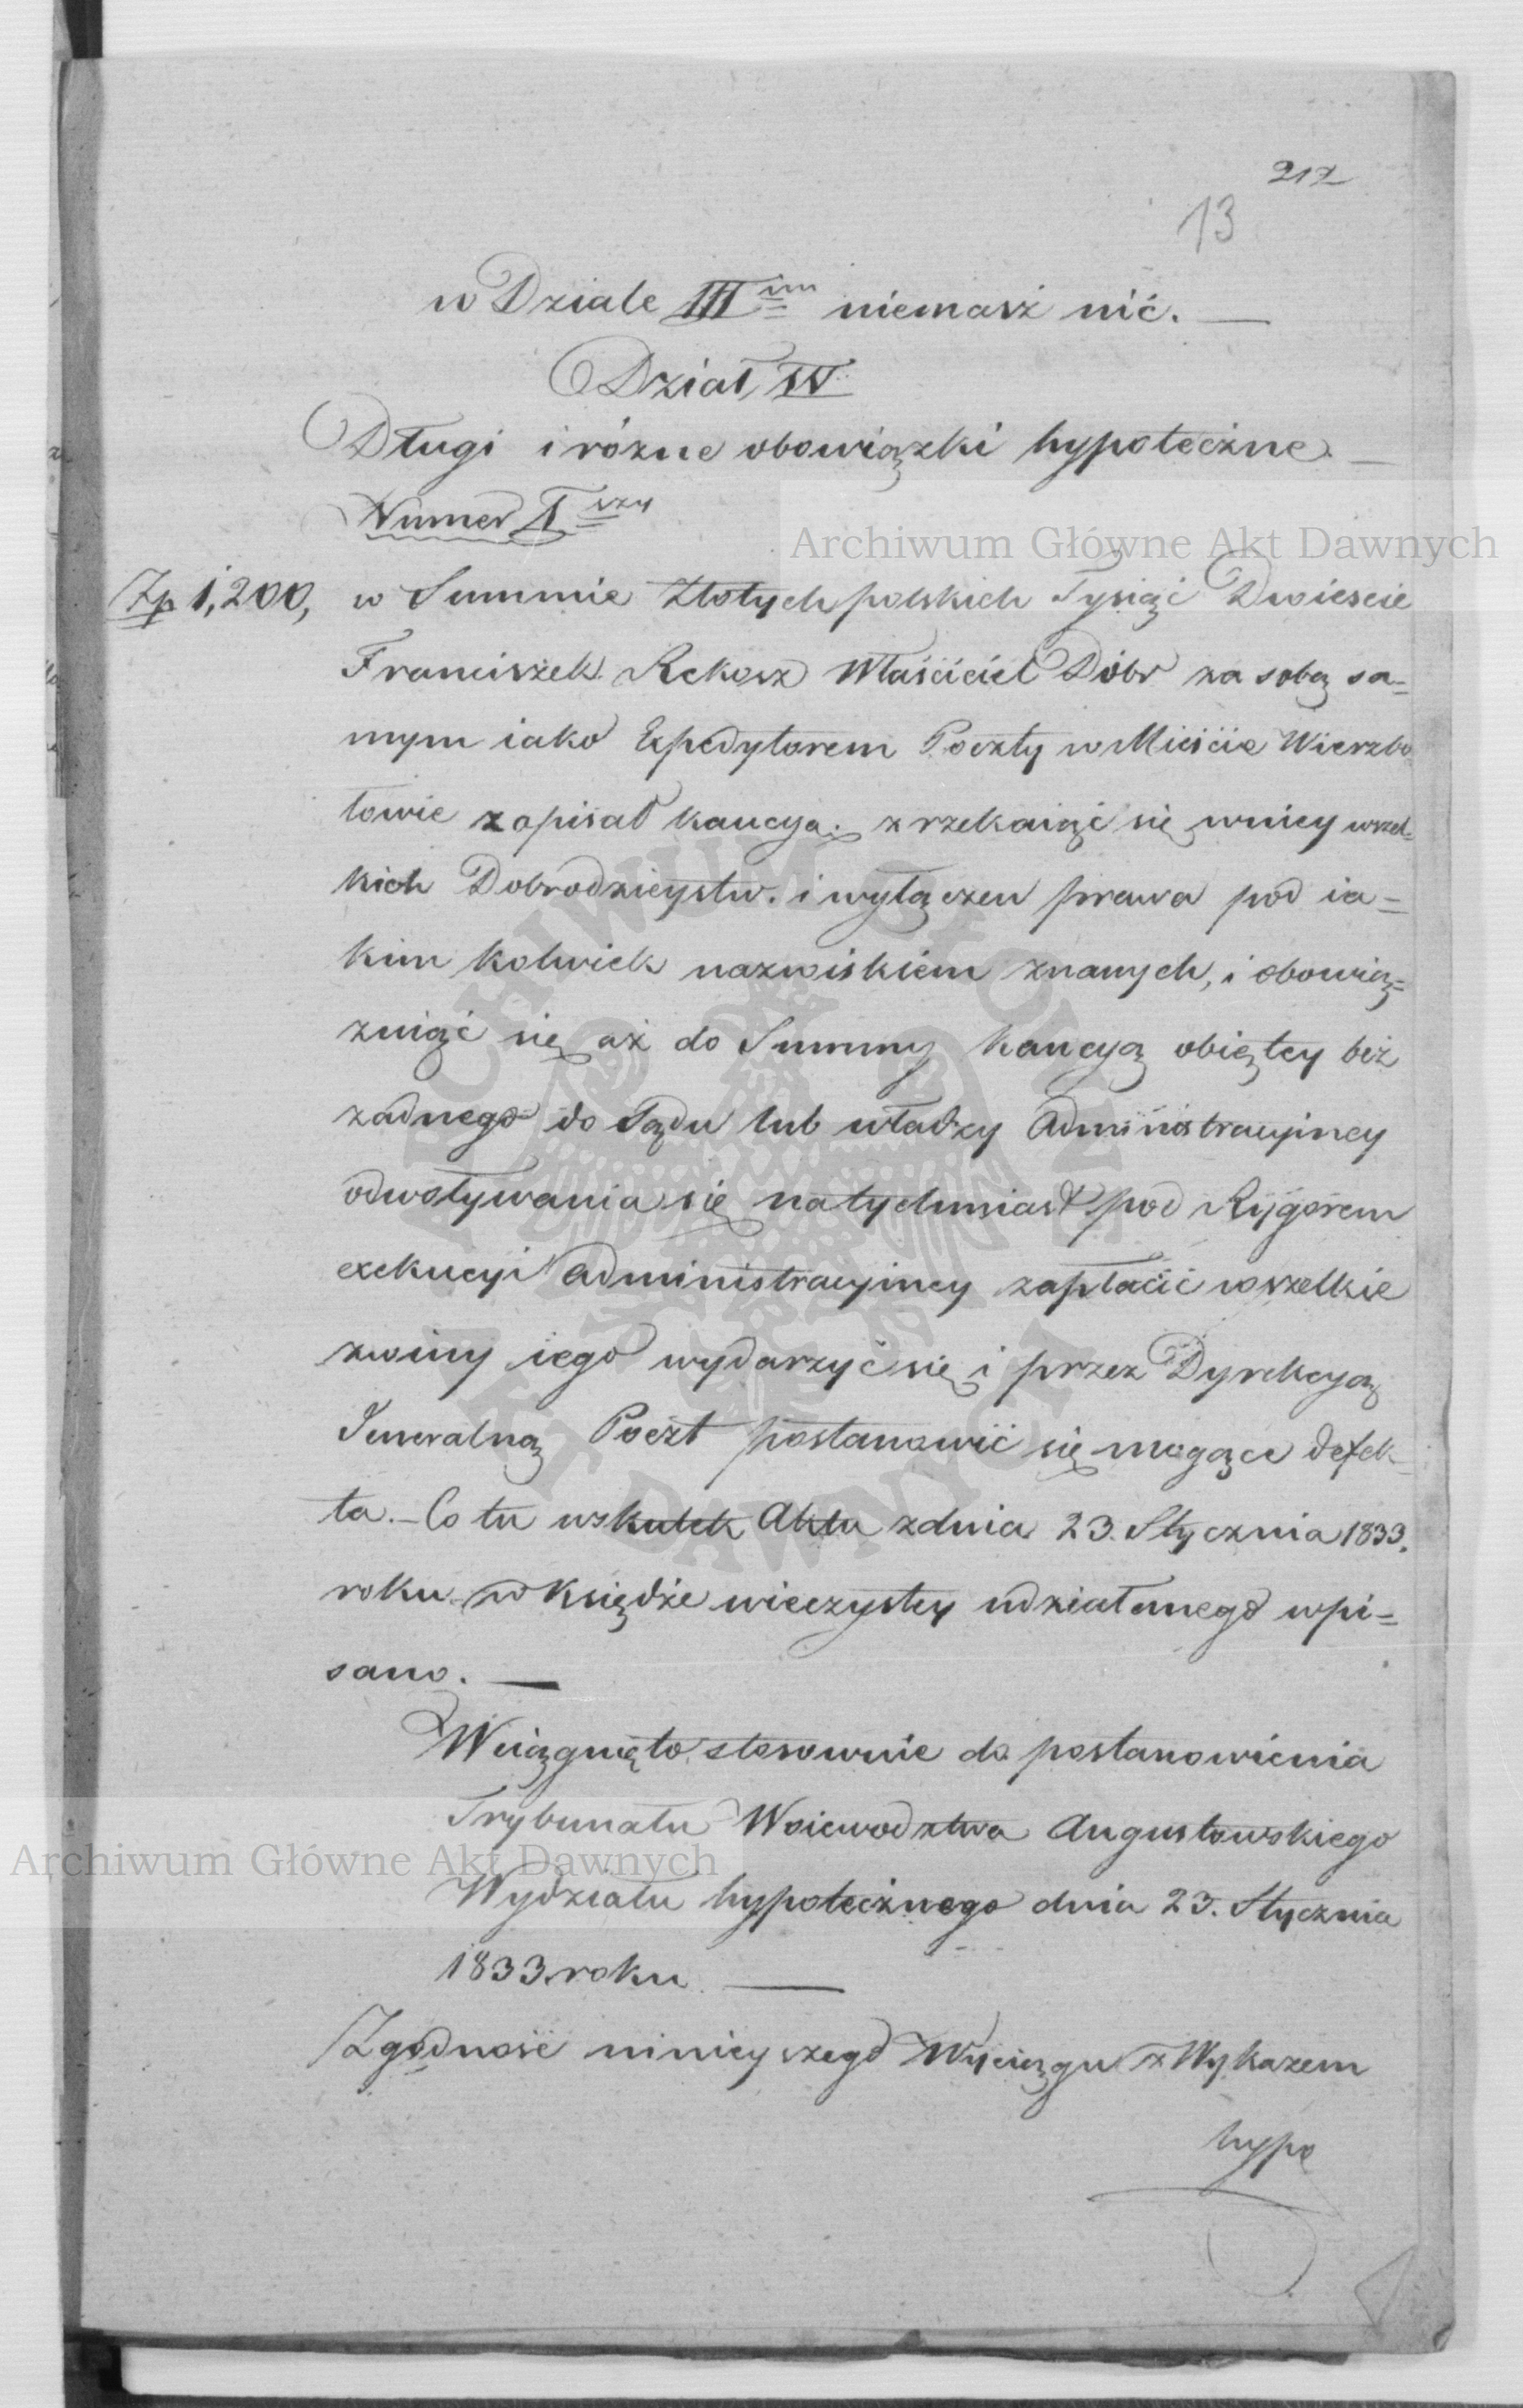 217
13
w Dziale III im niemasz nić.
Dział IV
Długi i rózne obowiązki hypoteczne.
Numer 1 szy
Zp 1,200, w Summie Złotych polskich Tysiąc Dwiescie
Franciszek Rekosz Właściciel Dóbr za sobą sa=
mym iako Expedytorem Poczty w Mieście Wierzbo
łowie zapisał kaucyą; zrzekaiąc się wniey wszel=
kich Dobrodzieystw. i wyłączeń prawa pod ia=
kim kolwiek nazwiskiem znanych, i obowią=
zuiąć się aż do Summy kaucyą obiętey bez
zadnego do Sądu lub władzy Administracyiney
odwoływania się natychmiast pod Rygorem
exekucyi Administracyiney zapłacić wszelkie
zwiny iego wydarzyć się i przez Dyrekcyą
Jeneralną Poczt postanowić się mogące defek=
ta. – Co tu wskutek Aktu zdnia 23. Stycznia 1833.
roku w Księdze wieczystey udziałanego wpi=
sano. —
Wciągnięto stosownie do postanowienia
Trybunału Woiewodztwa Augustowskiego
Wydziału hypotecznego dnia 23. Stycznia
1833 roku. —
Zgodność ninieyszego Wyciągu z Wykazem
hypo
Archiwum Główne Akt Dawnych
Archiwum Główne Akt Dawnych
ARCHIWUM GŁÓWNE
AKT DAWNYCH